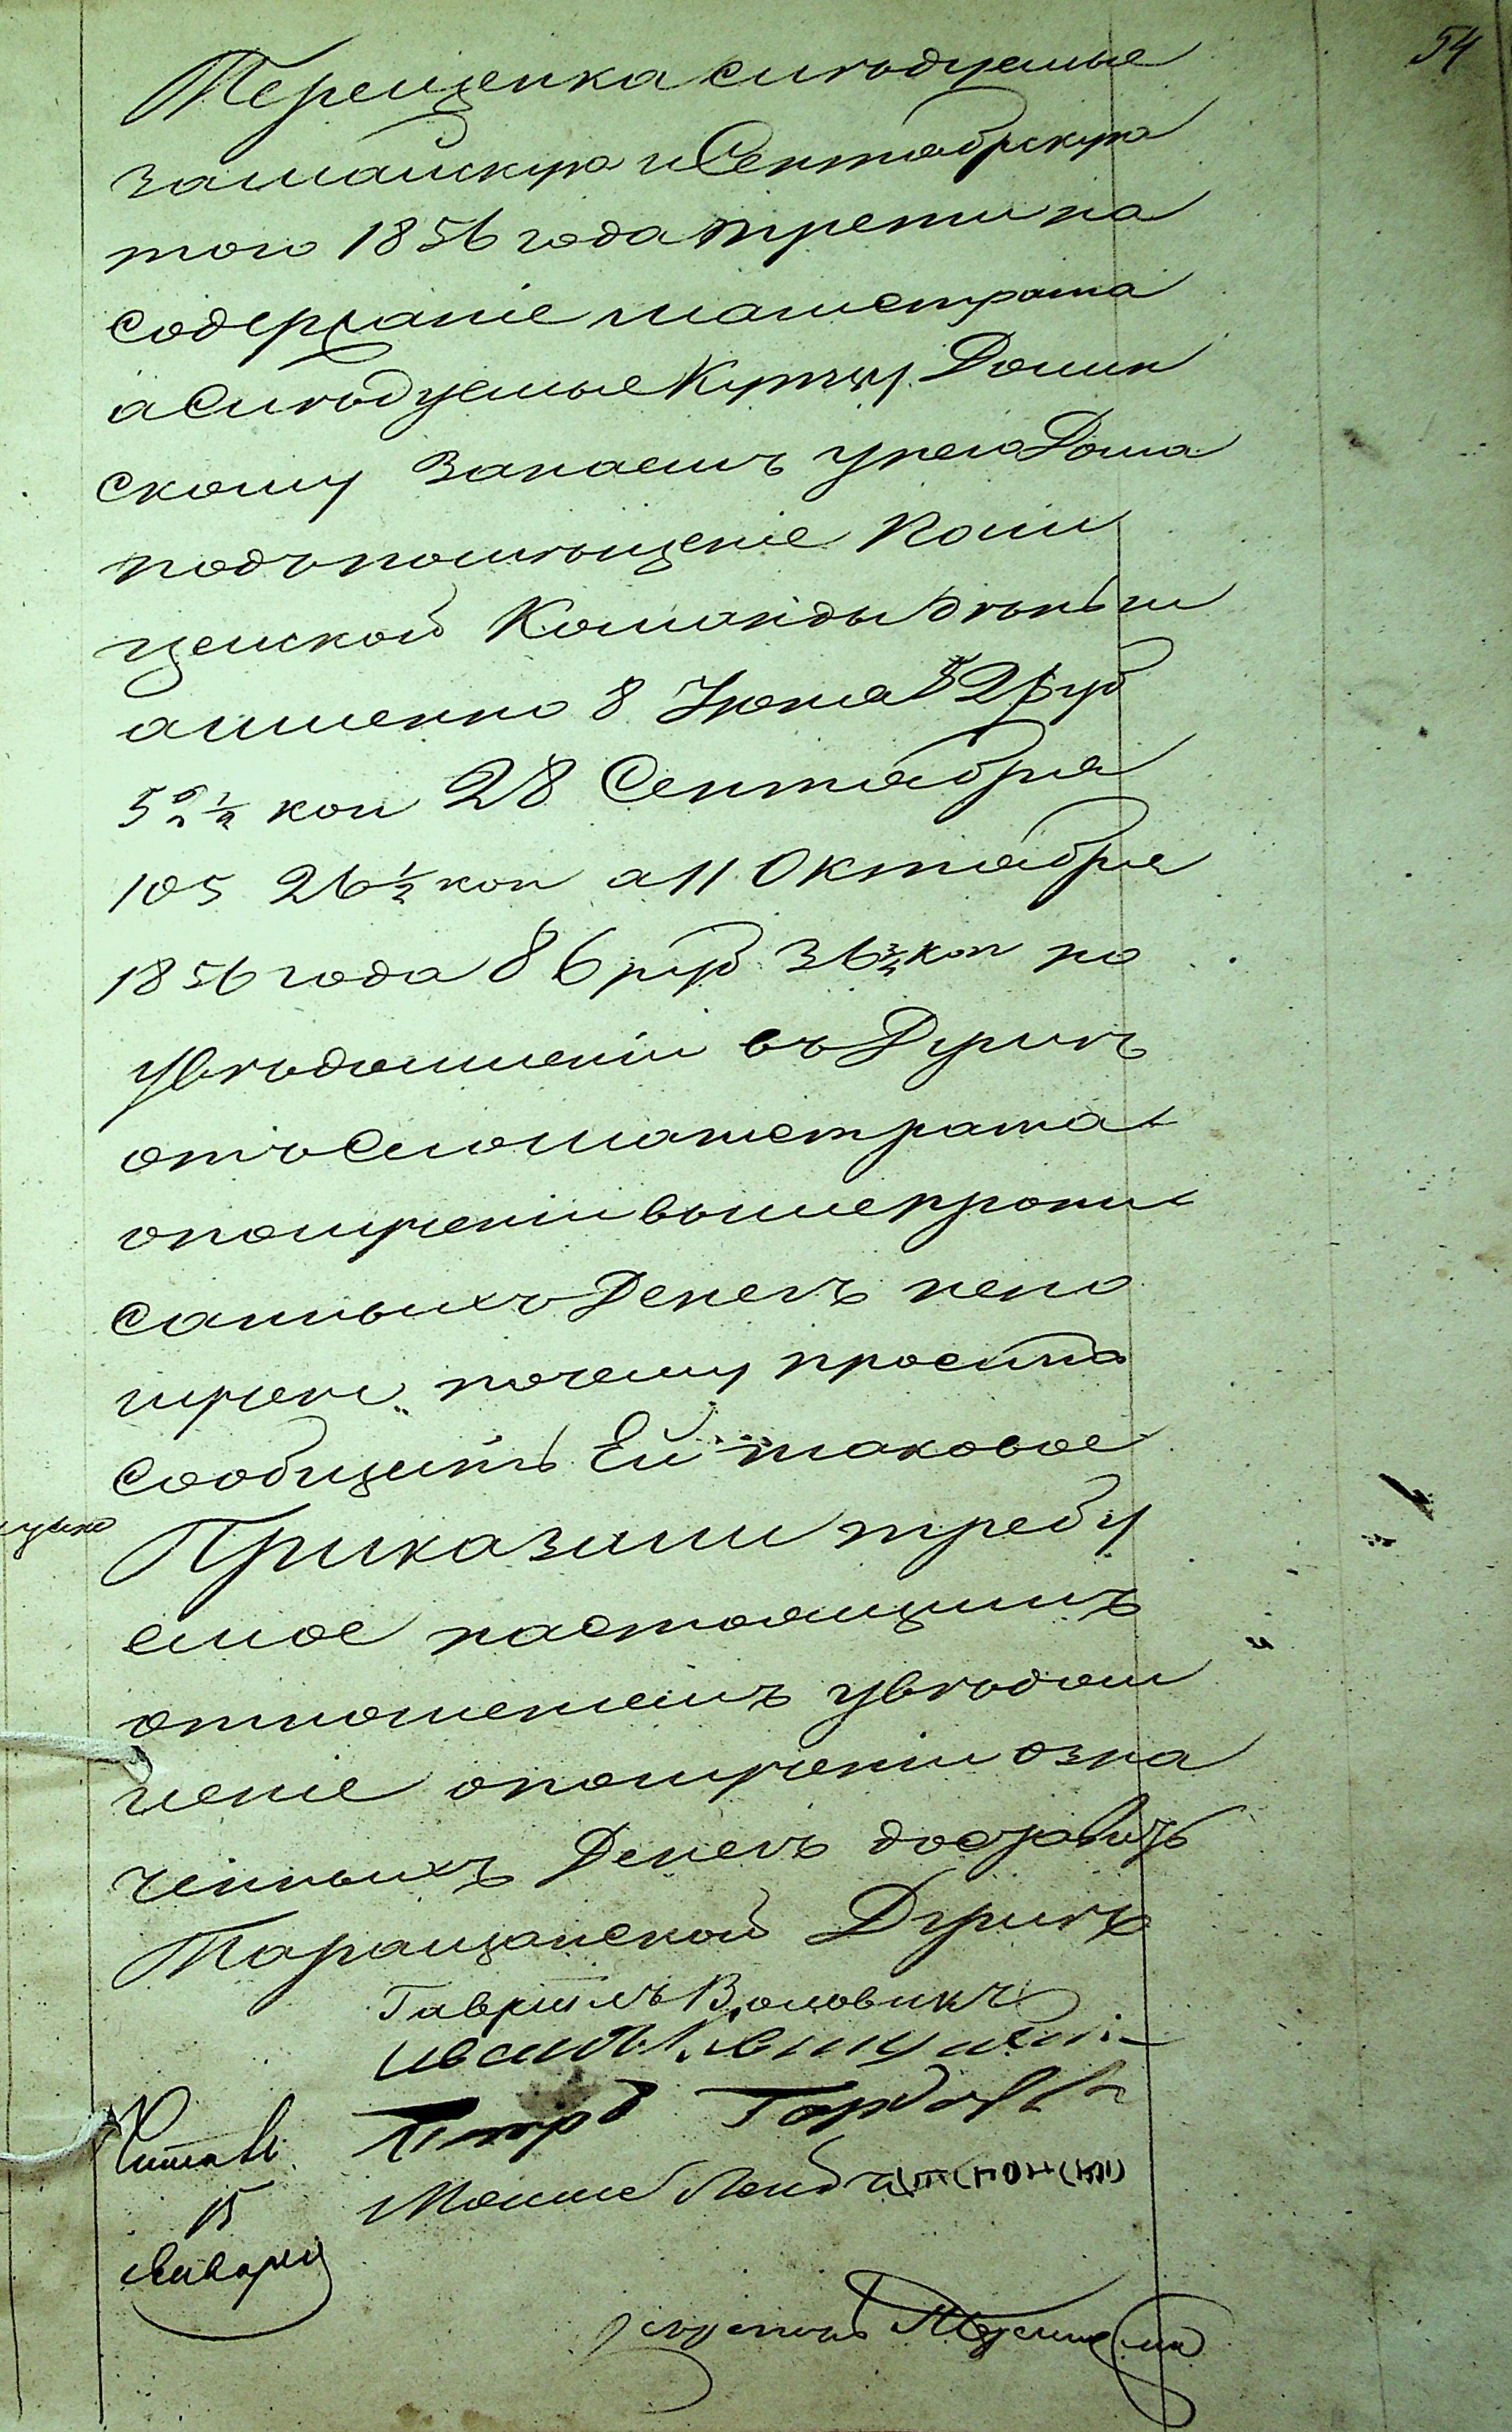 54
Терещенка слѣдуемые
замайскую и Сентябрскую
того 1856 года трети на
содержаніе магистрата
а Слѣдуемые Купцу Долин
скому Занаемъ унего Дома
подъпомѣщеніе Поли
цейской Команды дѣньги
аименно 8 Іюня 52 руб
52 ½ коп 28 Сентября
105 26 ½ коп а 11 Октября
1856 года 86 руб 36 ¾ коп но
увѣдомленіи въ Думѣ
отъ Сего магистрата
ополученіи вышепропи
санныхъ Денегъ непо
лучено почему просита
сообщить Ей таковое
Приказали требу
емое настоящимъ
отношеніемъ увѣдом
леніе ополученіи озна
ченныхъ Денегъ доставить
Таращанской Думѣ
Гавриилъ Воловикъ
Иванъ
Петръ
Читалъ
15
Января